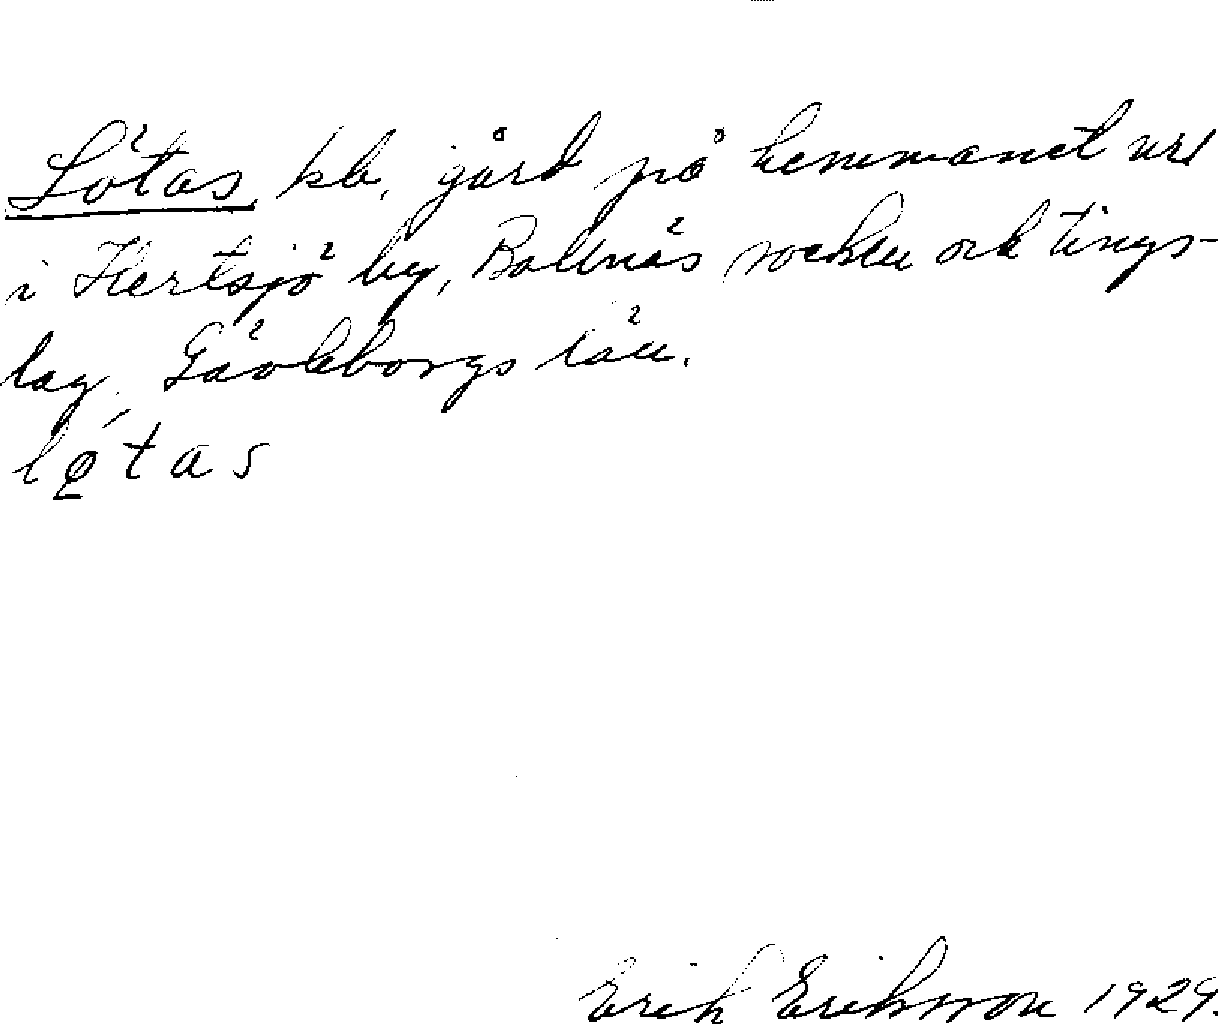 Lötas, kb. gård på hemmanet nr 1
i Hertsjö by, Bollnäs socken och tings-
lag, Gävleborgs län.
lǿ̱tas
Erik Eriksson 1929.